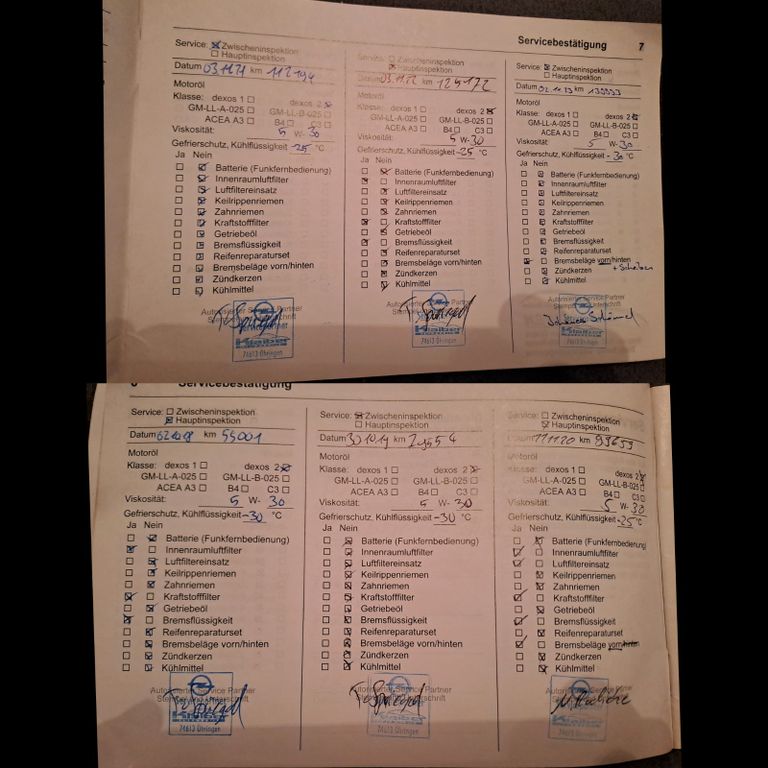 Servicebestätigung 7
Service: Zwischeninspektion
Hauptinspektion
Datum 03.11.21 km 112194
Motoröl
Klasse: dexos 1 dexos 2
GM-LL-A-025 GM-LL-B-025
ACEA A3 B4 C3
Viskosität: 5 W- 30
Gefrierschutz, Kühlflüssigkeit -25 °C
Ja Nein
Batterie (Funkfernbedienung)
Innenraumluftfilter
Luftfiltereinsatz
Keilrippenriemen
Zahnriemen
Kraftstofffilter
Getriebeöl
Bremsflüssigkeit
Reifenreparaturset
Bremsbeläge vorn/hinten
Zündkerzen
Kühlmittel
Autorisierter Service Partner
Kleiber
74613 Öhringen
Service: Zwischeninspektion
Hauptinspektion
Datum 03.11.22 km 125172
Motoröl
Klasse: dexos 1 dexos 2
GM-LL-A-025 GM-LL-B-025
ACEA A3 B4 C3
Viskosität: 5 W-30
Gefrierschutz, Kühlflüssigkeit -25 °C
Ja Nein
Batterie (Funkfernbedienung)
Innenraumluftfilter
Luftfiltereinsatz
Keilrippenriemen
Zahnriemen
Kraftstofffilter
Getriebeöl
Bremsflüssigkeit
Reifenreparaturset
Bremsbeläge vorn/hinten
Zündkerzen
Kühlmittel
Autorisierter Service Partner
Kleiber
74613 Öhringen
Service: Zwischeninspektion
Hauptinspektion
Datum km
Motoröl
Klasse: dexos 1 dexos 2
GM-LL-A-025 GM-LL-B-025
ACEA A3 B4 C3
Viskosität: 5 W- 30
Gefrierschutz, Kühlflüssigkeit -30 °C
Ja Nein
Batterie (Funkfernbedienung)
Innenraumluftfilter
Luftfiltereinsatz
Keilrippenriemen
Zahnriemen
Kraftstofffilter
Getriebeöl
Bremsflüssigkeit
Reifenreparaturset
Bremsbeläge vorn/hinten
Zündkerzen + Scheiben
Kühlmittel
Autorisierter Service Partner
Kleiber
Servicebestätigung
Service: Zwischeninspektion
Hauptinspektion
Datum km 55001
Motoröl
Klasse: dexos 1 dexos 2
GM-LL-A-025 GM-LL-B-025
ACEA A3 B4 C3
Viskosität: 5 W- 30
Gefrierschutz, Kühlflüssigkeit -30 °C
Ja Nein
Batterie (Funkfernbedienung)
Innenraumluftfilter
Luftfiltereinsatz
Keilrippenriemen
Zahnriemen
Kraftstofffilter
Getriebeöl
Bremsflüssigkeit
Reifenreparaturset
Bremsbeläge vorn/hinten
Zündkerzen
Kühlmittel
Autorisierter Service Partner
Kleiber
74613 Öhringen
Service: Zwischeninspektion
Hauptinspektion
Datum 30.10.19 km
Motoröl
Klasse: dexos 1 dexos 2
GM-LL-A-025 GM-LL-B-025
ACEA A3 B4 C3
Viskosität: 5 W- 30
Gefrierschutz, Kühlflüssigkeit -30 °C
Ja Nein
Batterie (Funkfernbedienung)
Innenraumluftfilter
Luftfiltereinsatz
Keilrippenriemen
Zahnriemen
Kraftstofffilter
Getriebeöl
Bremsflüssigkeit
Reifenreparaturset
Bremsbeläge vorn/hinten
Zündkerzen
Kühlmittel
Autorisierter Service Partner
Kleiber
74613 Öhringen
Service: Zwischeninspektion
Hauptinspektion
Datum km 93653
Motoröl
Klasse: dexos 1 dexos 2
GM-LL-A-025 GM-LL-B-025
ACEA A3 B4 C3
Viskosität: 5 W- 30
Gefrierschutz, Kühlflüssigkeit -25 °C
Ja Nein
Batterie (Funkfernbedienung)
Innenraumluftfilter
Luftfiltereinsatz
Keilrippenriemen
Zahnriemen
Kraftstofffilter
Getriebeöl
Bremsflüssigkeit
Reifenreparaturset
Bremsbeläge vorn/hinten
Zündkerzen
Kühlmittel
Autorisierter Service Partner
Kleiber
74613 Öhringen